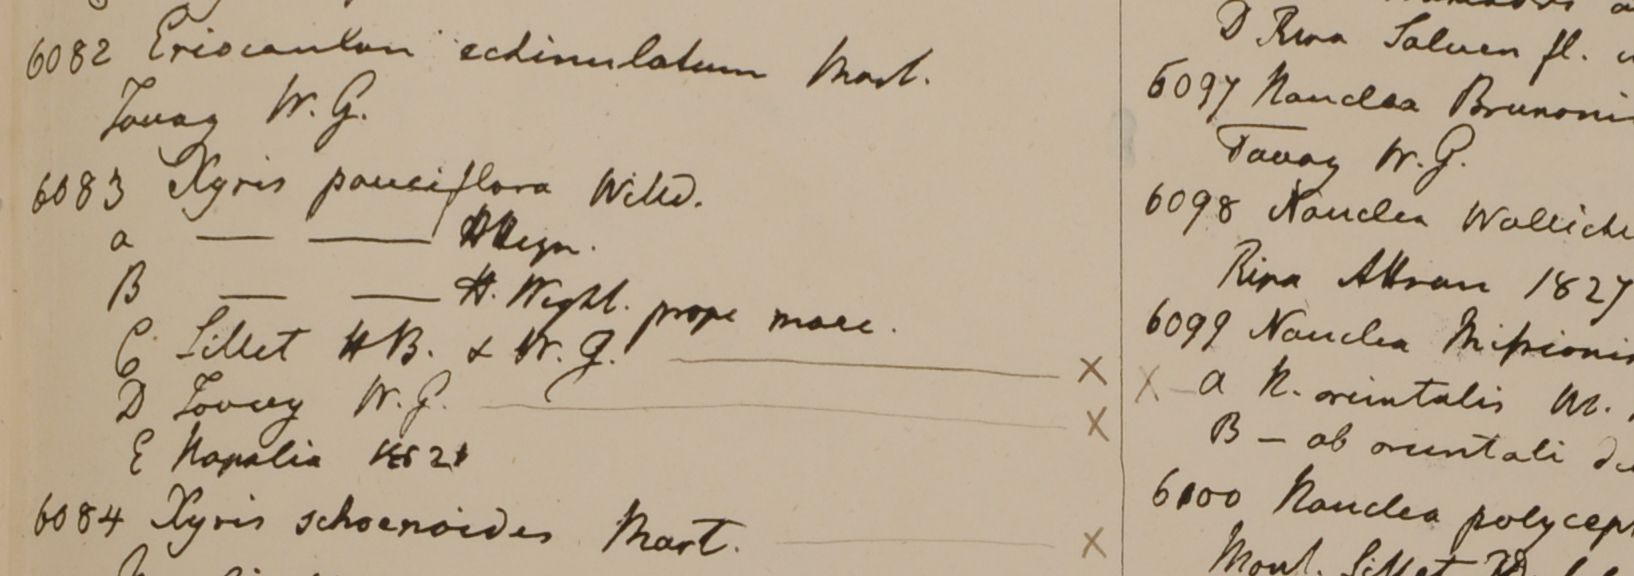 6082 Eriocaulon echinulatum Mart.
Tavay W. G.
6083 Xyris pauciflora Willd.
a — — HHeyn.
B — — H. Wight. prope mare.
C Sillet HB. & W. G. X
D Tavoy W. G. X
E Napalia 1821
6084 Xyris schoenoides Mart. X
D Ripa Saluen fl.
6097 Nauclea Brunoni
Tavoy W. G.
6098 Nauclea Wallichi
Ripa Attran 1827
6099 Nauclea Missionis
X a N. orientalis
B — ab orientali
6100 Nauclea polyceph
Mont. Sillet